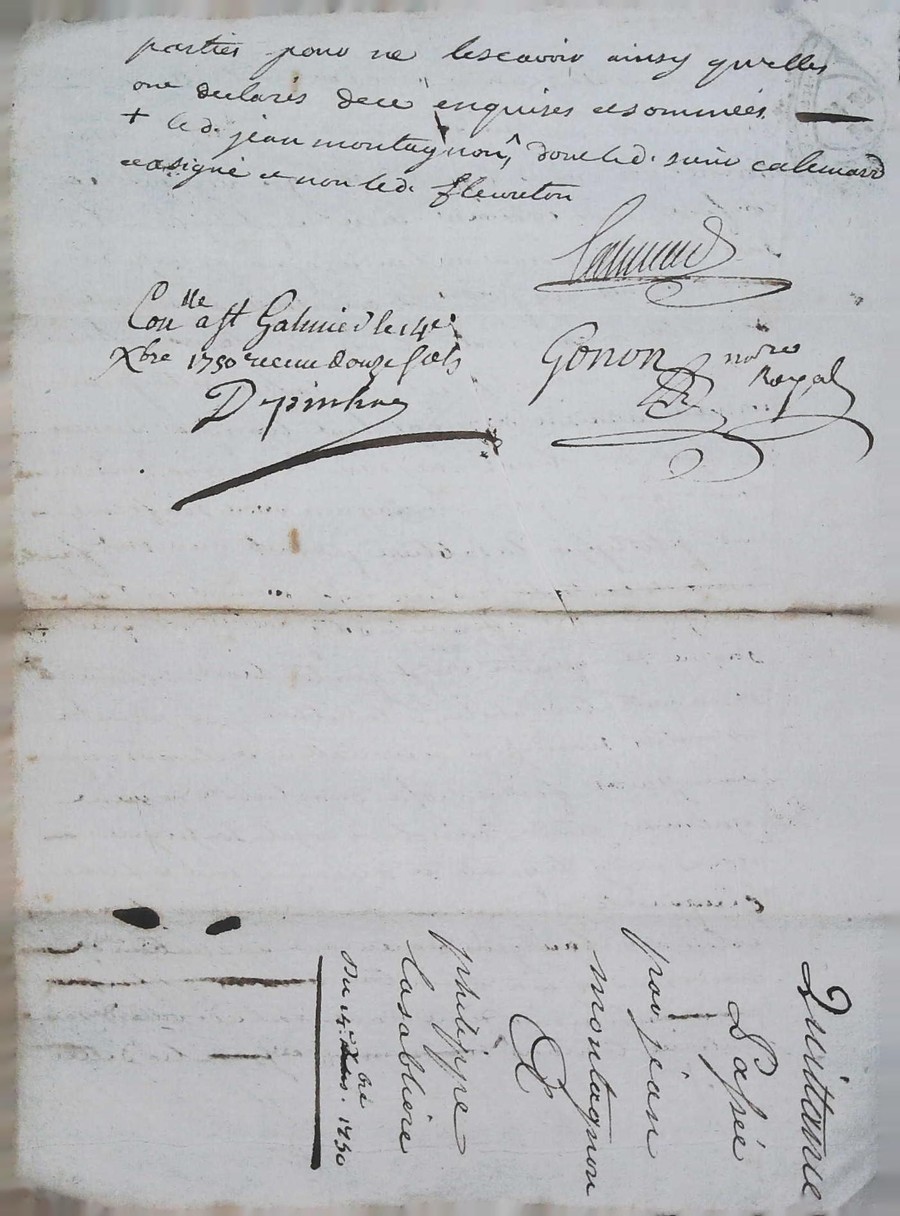 parties pour ne lescavoir ainsy qu'elles
ont declarés dece enquises et sommées
+ led. jean montagnon, dont led. sieur calemard
a signé et non led. fleureton
Calemard
Con.lle a St Galmier le 14e
Xbre 1750 receu douze sols
Depinhac
Gonon no.re
Royal
Quittance
Passée
par jean
montagnon
A
philippe
lasabliere
Du 14e. Xbre. 1750